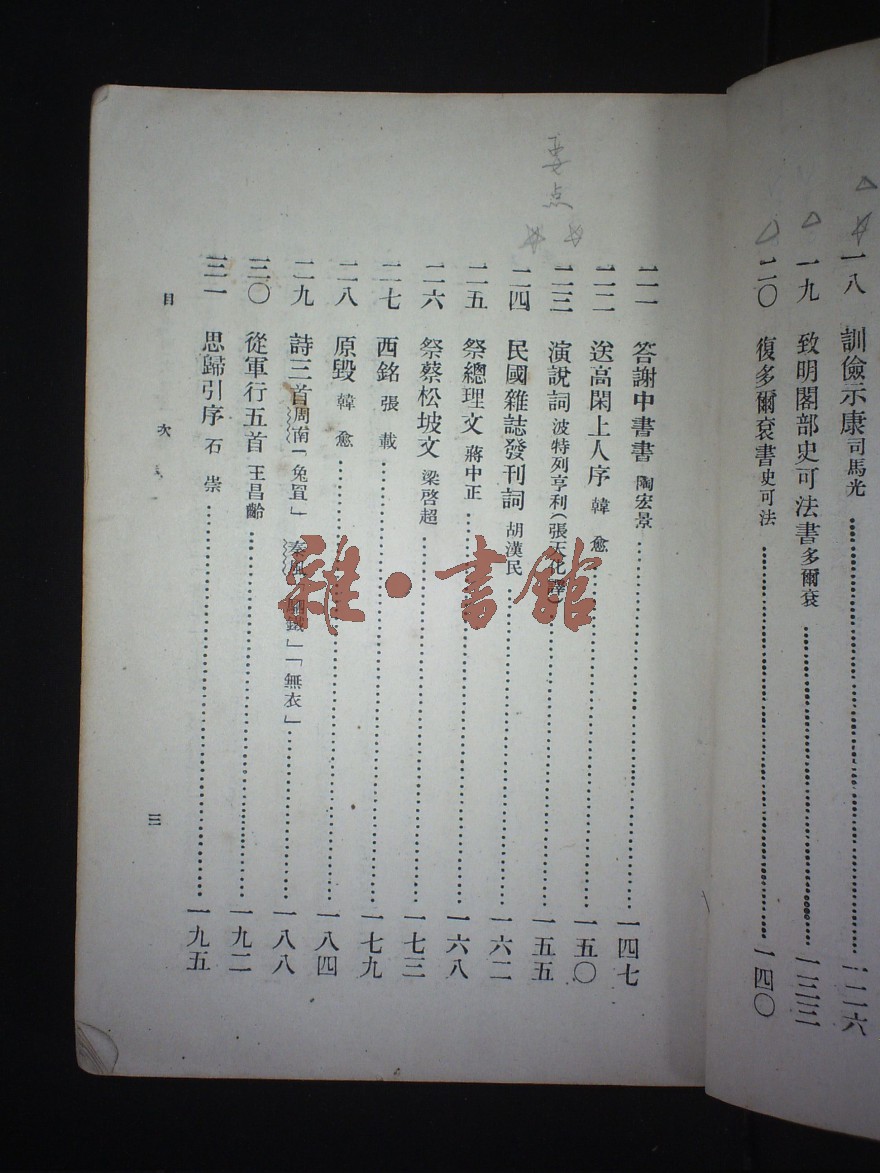 一八 訓儉示康 司馬光 一二六
一九 致明閣部史可法書 多爾袞 一三三
二〇 復多爾袞書 史可法 一四〇
要点
二一 答謝中書書 陶宏景 一四七
二二 送高閑上人序 韓愈 一五〇
二三 演說詞 波特列亨利(張天化譯) 一五五
二四 民國雜誌發刊詞 胡漢民 一六二
二五 祭總理文 蔣中正 一六八
二六 祭蔡松坡文 梁啓超 一七三
二七 西銘 張載 一七九
二八 原毀 韓愈 一八四
二九 詩三首 周南「兔罝」 秦風「駟鐵」「無衣」 一八八
三〇 從軍行五首 王昌齡 一九二
三一 思歸引序 石崇 一九五
目次 三
雜·書館